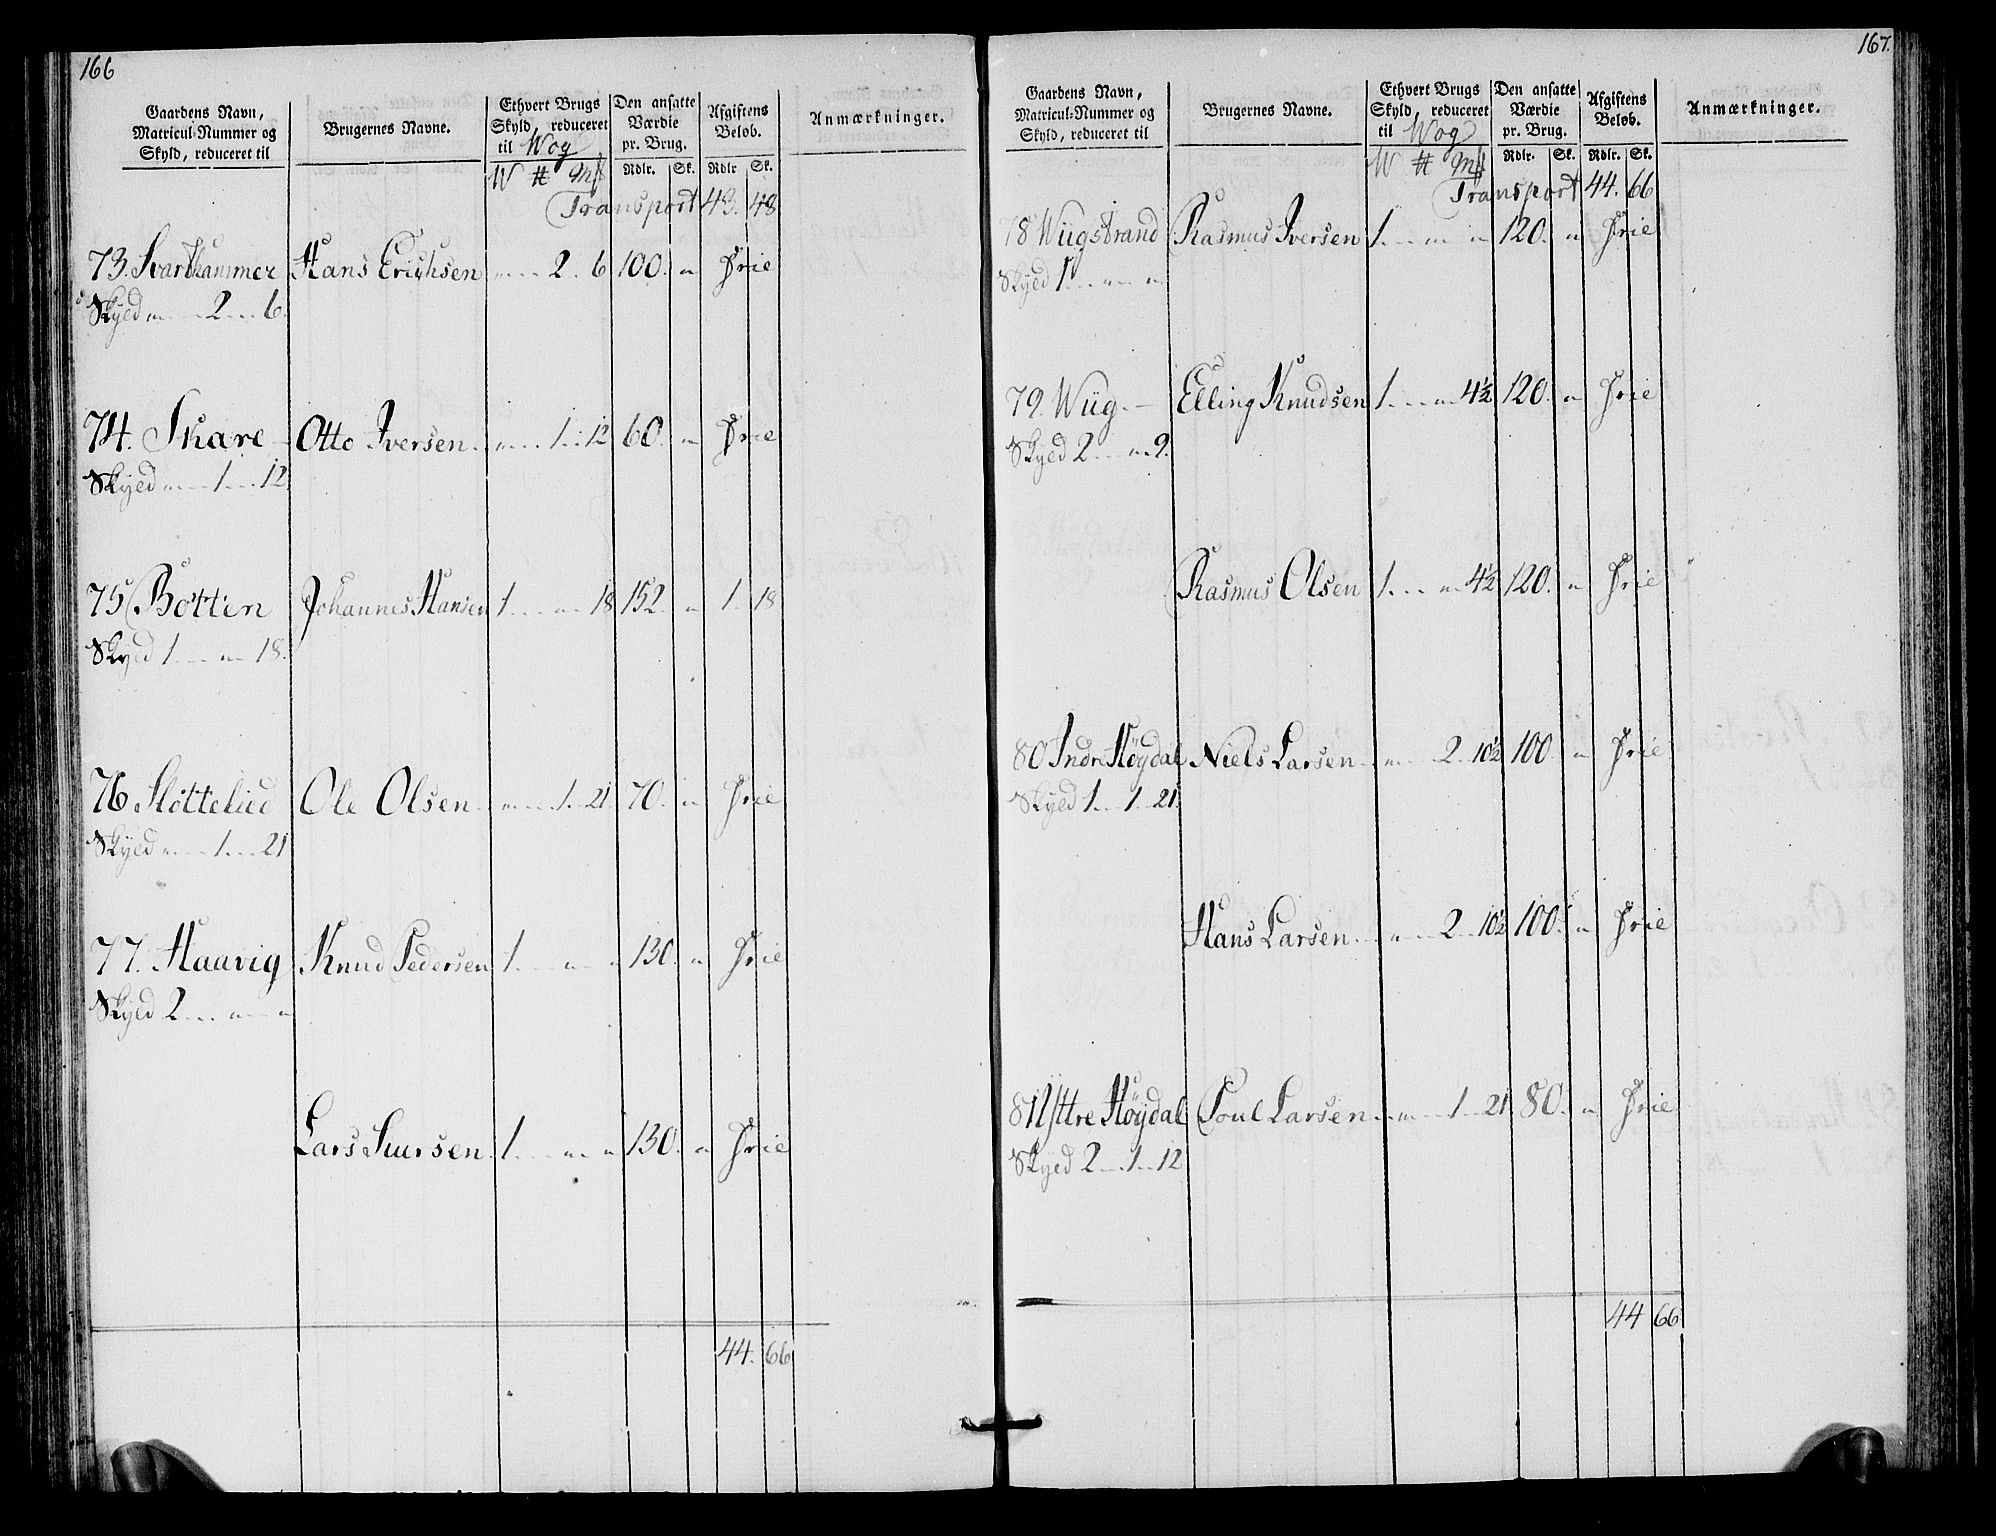 166
Gaardens Navn, Matricul-Nummer og Skyld, reduceret til
Brugernes Navne.
Ethvert Brugs Skyld, reduceret til Wog
Den ansatte Værdie pr. Brug.
Afgiftens Beløb.
Anmærkninger.
W Rdlr. Sk. Rdlr Sk.
Transport 43. 48
73. Svartkammer Hans Erichsen " 2. 6 100. " Frie
Skyld " 2 6.
74. Skare Otto Iversen. " 1. 12 60. " Frie
Skyld " 1. 12.
75 Botten Johannes Hansen 1 " 18 152. " 1. 18
Skyld 1 " 18.
76 Slottelied Ole Olsen " 1. 21 70. " Frie
Skyld " 1. 21
77. Haavig Knud Pedersen 1. " " 130. " Frie
Skyld 2 " "
Lars Siursen 1. " " 130. " Frie
44. 66
167.
Gaardens Navn, Matricul-Nummer og Skyld, reduceret til
Brugernes Navne.
Ethvert Brugs Skyld, reduceret til Wog
Den ansatte Værdie pr. Brug.
Afgiftens Beløb.
Anmærkninger.
W Rdlr. Sk. Rdlr. Sk.
Transport 44. 66
78 Wiigstrand Rasmus Iversen 1. " " 120. " Frie
Skyld 1. " "
79. Wiig. Elling Knudsen 1. " 4½ 120. " Frie
Skyld 2 " 9.
Rasmus Olsen 1. " 4½ 120. " Frie
80 Indre Høydal Niels Larsen " 2. 10½ 100 " Frie
Skyld 1. 1. 21.
Hans Larsen " 2. 10½ 100. " Frie
81 Ystre Høydal Poul Larsen " 1. 21 80. " Frie
Skyld 2 1. 12
44 66